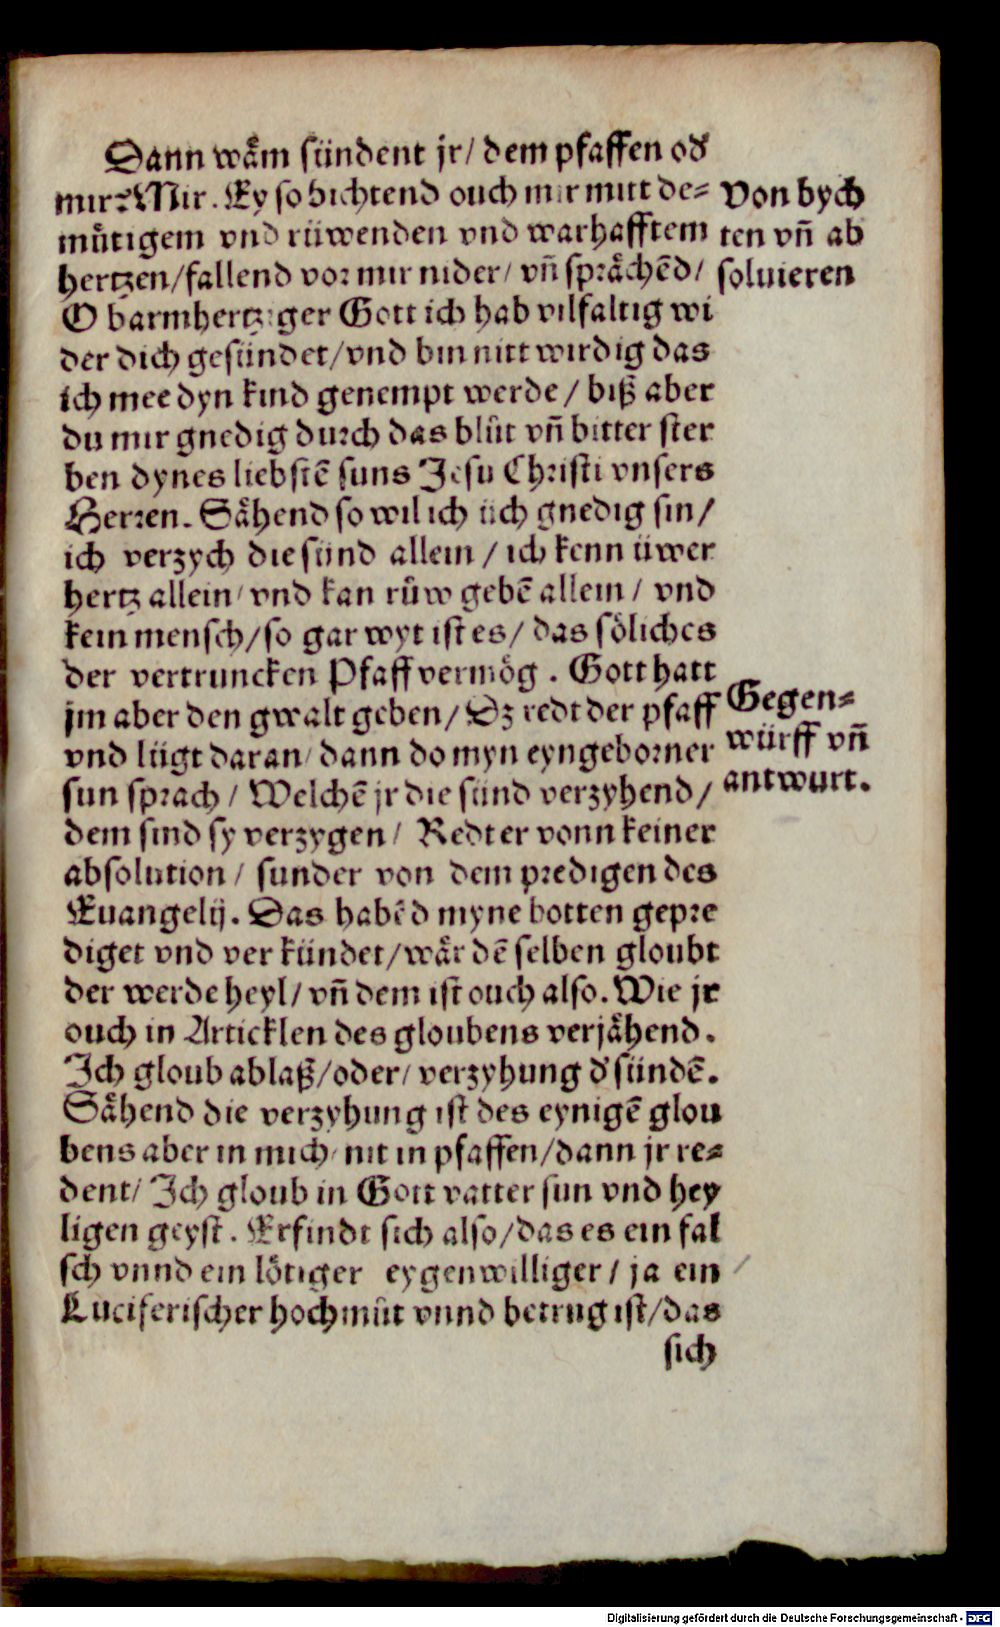 Dann wåm sündent jr/ dem pfaffen od'
mir? Mir. Ey so bichtend ouch mir mitt de=
mütigem vnd rüwenden vnd warhafftem
hertzen/ fallend vor mir nider/ vñ språchēd/
O barmhertziger Gott ich hab vilfaltig wi
der dich gesündet/ vnd bin nitt wirdig das
ich mee dyn kind genempt werde/ biß aber
du mir gnedig durch das blůt vñ bitter ster
ben dynes liebstē suns Jesu Christi vnsers
Herren. Såhend so wil ich üch gnedig sin/
ich verzych die sünd allein/ ich kenn üwer
hertz allein/ vnd kan rüw gebē allein/ vnd
kein mensch/ so gar wyt ist es/ das söliches
der vertruncken Pfaff vermög. Gott hatt
jm aber den gwalt geben/ Dz redt der pfaff
vnd lügt daran/ dann do myn eyngeborner
sun sprach/ Welchē jr die sünd verzyhend/
dem sind sy verzygen/ Redt er vonn keiner
absolution/ sunder von dem predigen des
Euangelij. Das habēd myne botten gepre
diget vnd ver kündet/ wår dē selben gloubt
der werde heyl/ vñ dem ist ouch also. Wie jr
ouch in Articklen des gloubens verjåhend.
Ich gloub ablaß/ oder/ verzyhung d' sündē.
Såhend die verzyhung ist des eynigē glou
bens aber in mich/ nit in pfaffen/ dann jr re=
dent/ Ich gloub in Gott vatter sun vnd hey
ligen geyst. Erfindt sich also/ das es ein fal
sch vnnd ein lötiger eygenwilliger/ ja ein
Luciferischer hochmůt vnnd betrug ist/ das
sich
Von bych
ten vñ ab
soluieren
Gegen=
würff vñ
antwurt.
Digitalisierung gefördert durch die Deutsche Forschungsgemeinschaft - DFG